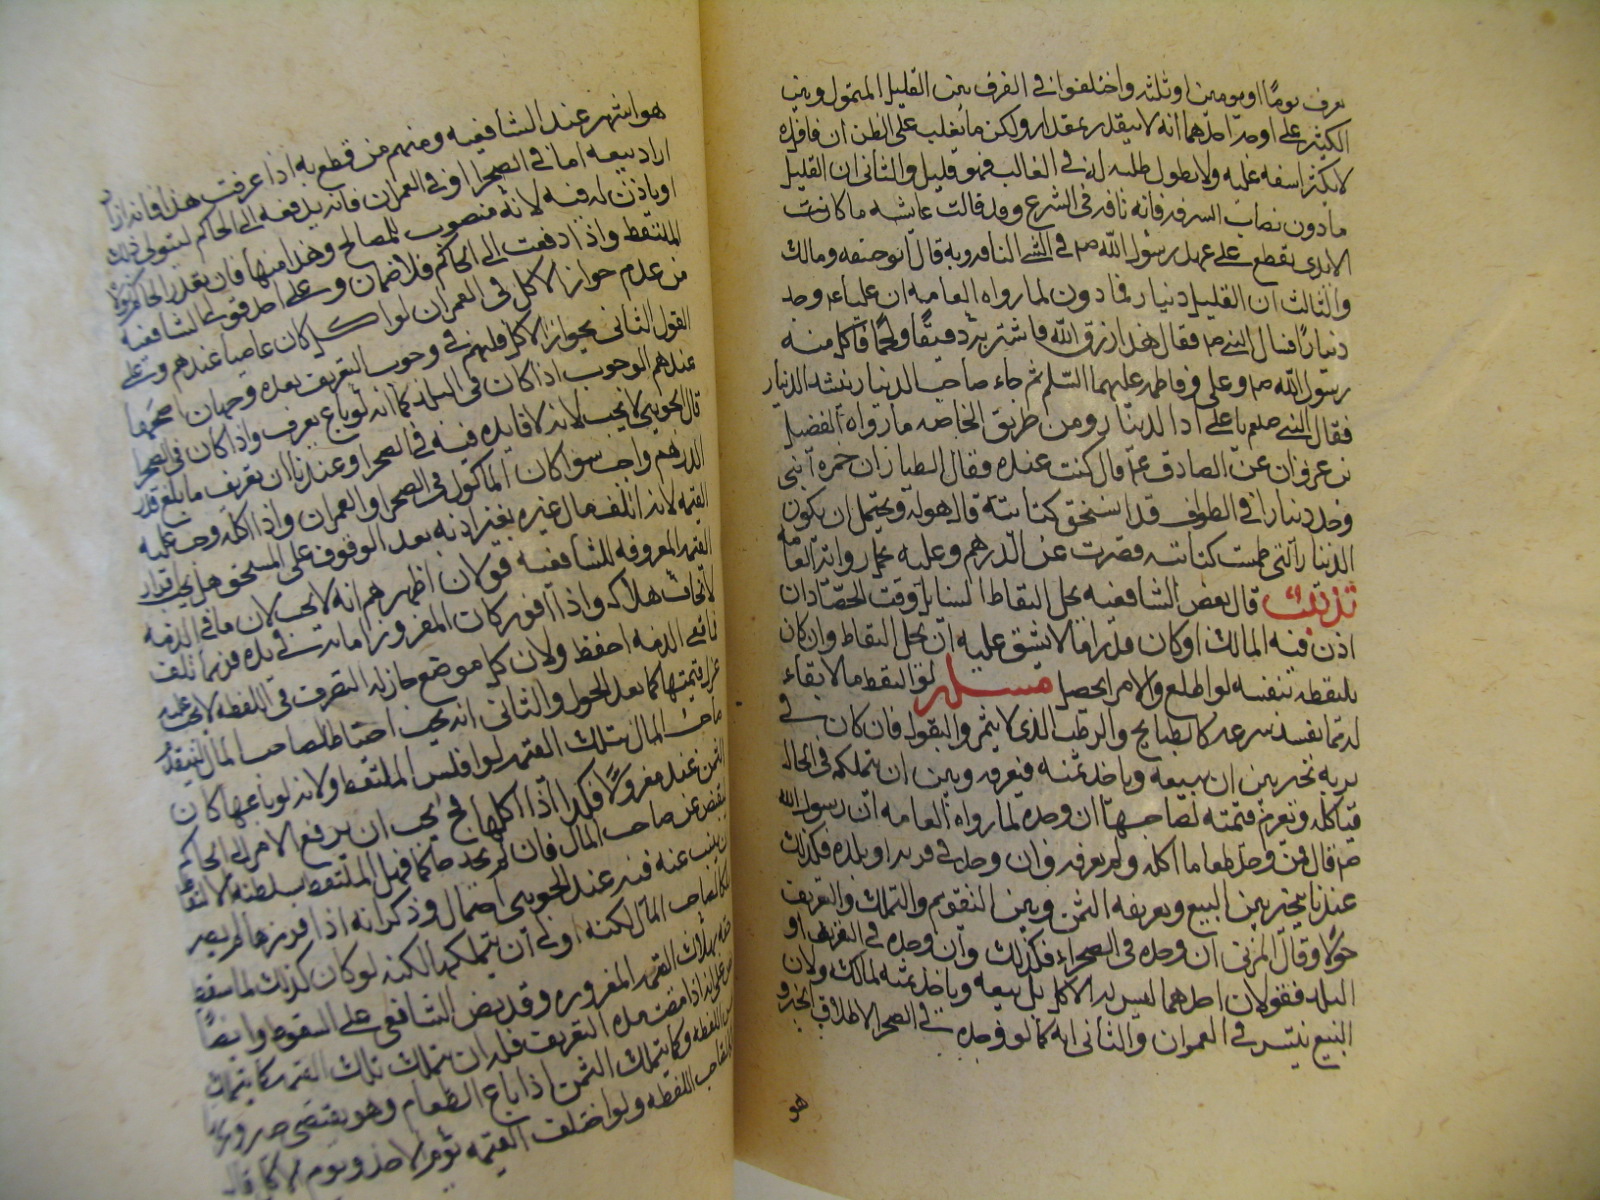 يعرف يوما او يومين او ثلثه واختلفوا في الفرق بين القليل المتمول وبين
الكثير على اوجه احدهما انه لا يتقدر بمقدار ولكن ما يغلب على الظن ان فاقده
لا يكثر اسفه عليه ولا يطول طلبه له في الغالب فهو قليل والثاني ان القليل
ما دون نصاب السرقه فانه تافه في الشرع وقد قالت عايشه ما كانت
الايدي تقطع على عهد رسول الله ص في الشئ التافه وبه قال ابو حنيفه ومالك
والثالث ان القليل دينار فما دون لما رواه العامه ان عليا ع وجد
دينارا فسال النبي ص فقال هذا رزق الله فاشتر به دقيقا ولحما فاكل منه
رسول الله ص وعلي وفاطمه عليهما السلم ثم جاء صاحب الدينار ينشد الدينار
فقال النبي صلعم يا علي اد الدينار ومن طريق الخاصه ما رواه الفضيل
بن غزوان عن الصادق ع قال كنت عنده فقال الطيار ان حمزه ابني
وجد دينارا في الطواف قد انسحق كتابته قال هو له ويحتمل ان يكون
الدينار التي طمست كتابته قصرت عن الدرهم وعليه يحمل رواية العامه
تذنيب قال بعض الشافعيه يحل التقاط السنابل وقت الحصاد ان
اذن فيه المالك او كان قدرا لا يشق عليه ان يحل التقاط وان كان
يلتقطه بنفسه لو اطلع والا لم يحصل مسئله لو التقط ما لا بقاء
له مما يفسد سرعه كالطبايخ والرطب الذي لا يتمر والبقول فان كان في
بريه تخير بين ان يبيعه وياخذ ثمنه فيعرفه وبين ان يتملكه في الحال
فياكله ويغرم قيمته لصاحبها ان وجده لما رواه العامه ان رسول الله
ص قال من وجد طعاما اكله ولم يعرفه وان وجد في قريه او بلده فكذلك
عندنا يتخير بين البيع وتعريفه الثمن وبين التقويم والتملك والتعريف
حولا وقال المزني ان وجده في الصحراء فكذلك وان وجده في القريه او
البلد فقولان احدهما ليس له الاكل بل يبيعه وياخذ ثمنه لمالكه ولان
البيع يتيسر في العمران والثاني انه كما لو وجده في الصحرا لاطلاق الخبر و
هو
هو اشهر عند الشافعيه ومنهم من قطع به اذا عرفت هذا فانه اذا
اراد بيعه اما في الصحرا او في العمران فانه يدفعه الى الحاكم ليتولى ذلك
او ياذن له فيه لانه منصوب للمصالح وهذا منها فان تعذر الحاكم تولاه
الملتقط واذا دفعت الى الحاكم فلا ضمان وعلى احد قولي الشافعيه
من عدم جواز الاكل في العمران لو اكل كان عاصيا عندهم وعلى
القول الثاني بجواز الاكل فلهم في وجوب التعريف بعده وجهان اصحهما
عندهم الوجوب اذا كان في البلد كما انه لو باع يعرف واذا كان في الصحرا
قال الجويني لا يجب لانه لا فايده فيه في الصحرا وعندنا ان تعريف ما بلغ قدر
الدرهم واجب سوا كان الماكول في الصحرا او العمران واذا اكله وجب عليه
القيمه لانه اتلف مال غيره بغير اذنه بعد الوقوف على المستحق هل يجب افراز
القيمه المعزوله للشافعيه قولان اظهرهم انه لا يجب لان ما في الذمه
لا يخاف هلاكه واذا افرز كان المفرز امانه في يده فربما تلف
فابقي الذمه احفظ ولان كل موضع جاز له التصرف في اللقطه لا يجب عليه
عزل قيمتها كما بعد الحول والثاني انه يجب احتياطا لصاحب المال ليتقدم
صاحب المال بتلك القيمه لو افلس الملتقط ولانه لو باعها كان
الثمن عنده معزولا فكذا اذا اكلها فح يجب ان يرفع الامر الى الحاكم
ليقبض عن صاحب المال فان لم يجد حاكما فهل للملتقط بسلطنه الالتقاط
ان ينيب عنه فيه عند الجويني احتمال وذكر انه اذا افرزها لم يصر
ملكا لصاحب المال لكنه اولى ان يتملكها لكنه لو كان كذلك لما سقط
حقه بهلاك القيمه المفروزه وقد نص الشافعي على السقوط وايضا
نص على انه اذا مضت مده التعريف فله ان يتملك تلك القيمه كما يتملك
نفس اللقطه وكما يتملك الثمن اذا باع الطعام وهو يقتضي صيرورتها
ملكا لصاحب اللقطه ولو اختلف القيمه يوم الاخذ ويوم الاكل قال